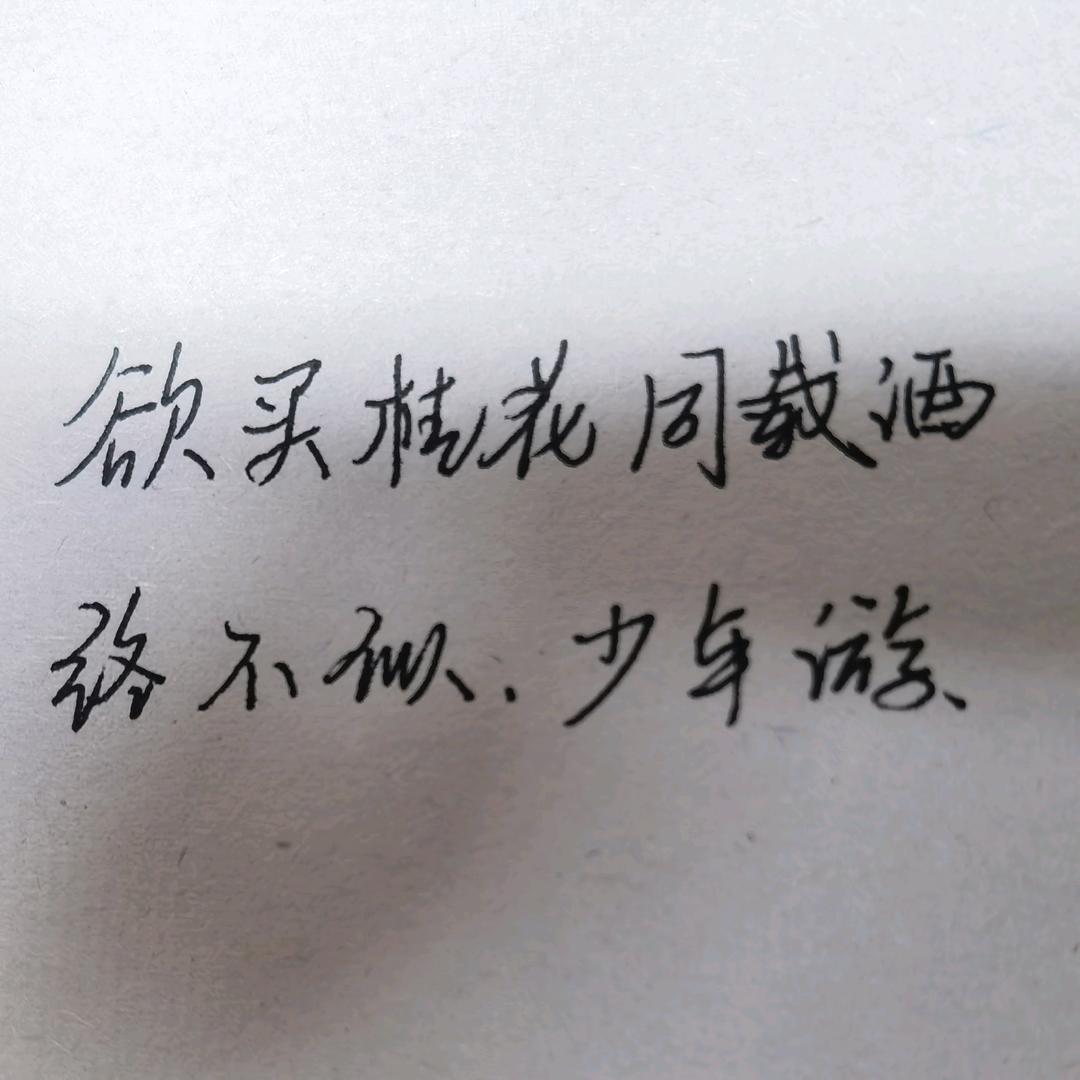 欲买桂花同载酒
终不似、少年游、